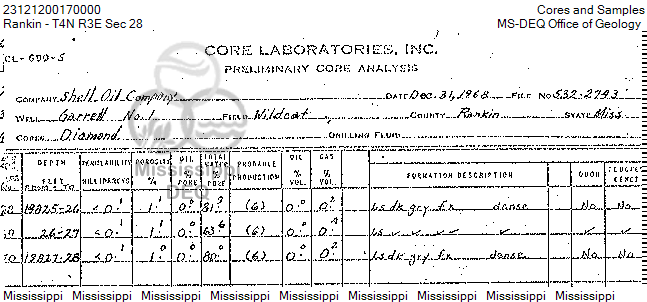 23121200170000 Cores and Samples
Rankin - T4N R3E Sec 28 MS-DEQ Office of Geology
CL-600-S
CORE LABORATORIES, INC.
PRELIMINARY CORE ANALYSIS
COMPANY Shell Oil Company DATE Dec. 31, 1968 FILE NO. 532-2793
WELL Garrett No. 1 FIELD Wildcat COUNTY Rankin STATE Miss
CORES Diamond DRILLING FLUID
Mississippi
DEQ
DEPTH FEET FROM - TO PERMEABILITY MILLIDARCYS POROSITY % OIL % PORE TOTAL WATER % PORE PROBABLE PRODUCTION OIL % VOL. GAS % VOL. FORMATION DESCRIPTION ODOR
19825-26 <0.1 1.1 0.0 (6) 0.0 0.2 Ls dk gry fx dense No No
26-27 <0.1 1.1 0.0 63.6 (6) 0.0 0.4 Ls ✓ ✓ ✓ ✓ ✓ ✓
19827-28 <0.1 1.0 0.0 80.0 (6) 0.0 0.2 Ls dk gry fx dense No No
Mississippi Mississippi Mississippi Mississippi Mississippi Mississippi Mississippi Mississippi